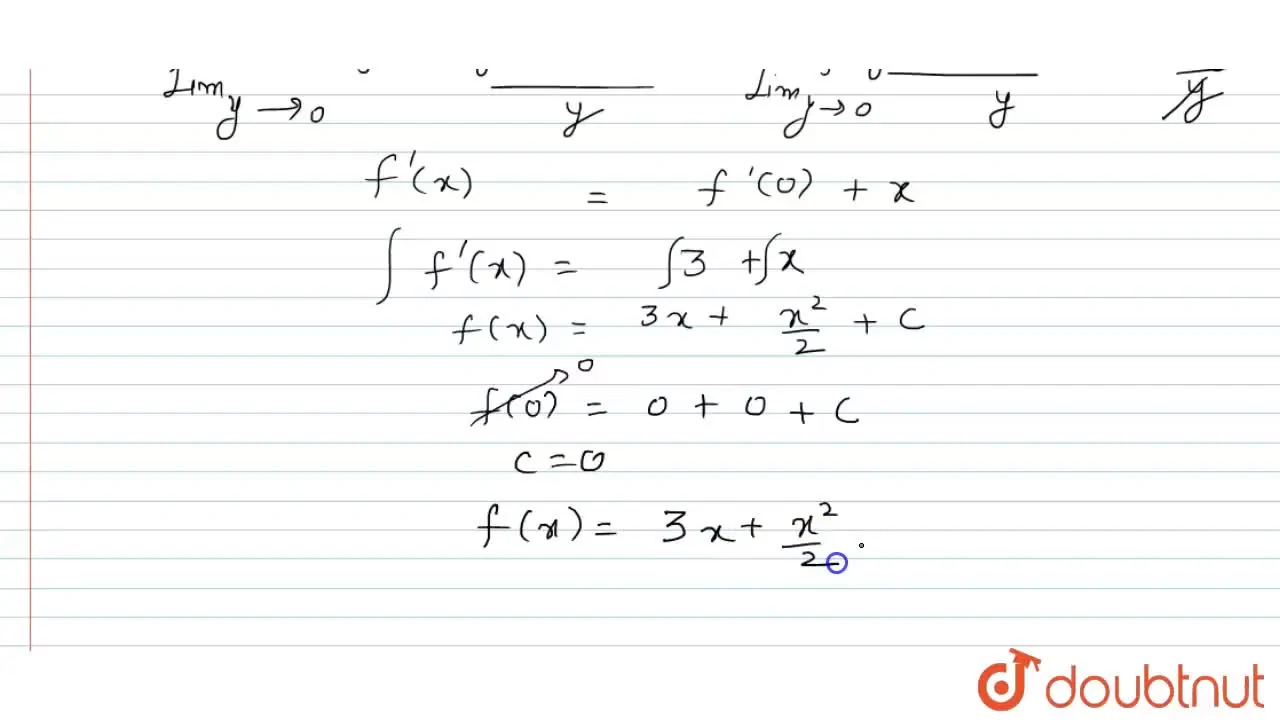 Lim y→0 y Lim y→0 y y
f'(x) = f'(0) + x
∫ f'(x) = ∫3 + ∫x
f(x) = 3x + x²/2 + C
0
f(0) = 0 + 0 + C
C = 0
f(x) = 3x + x²/2
doubtnut